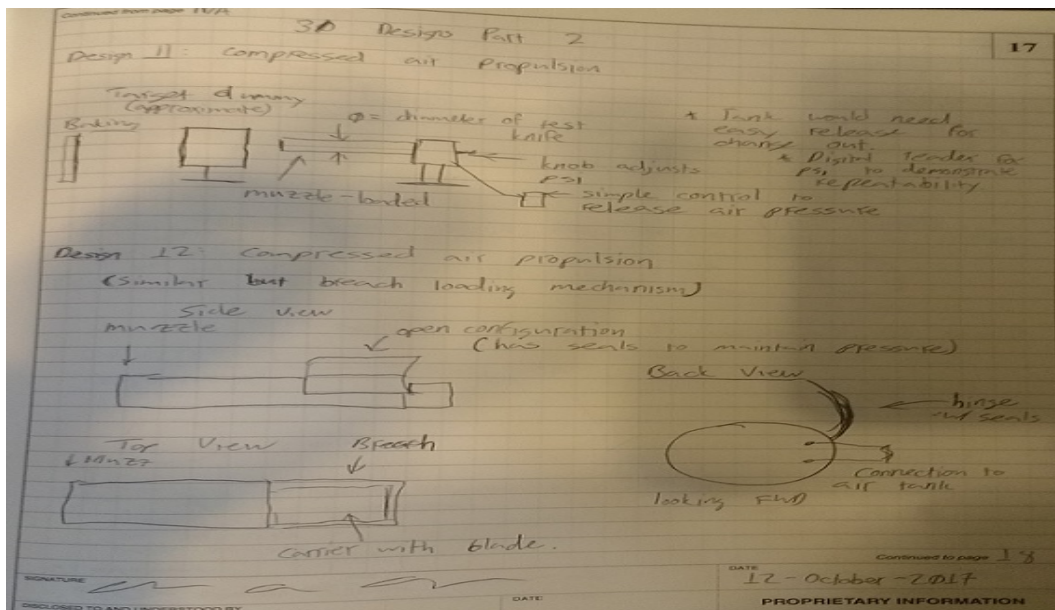 Continued from page N/A
30 Designs Part 2
17
Design 11: Compressed air Propulsion
Target dummy
(approximate)
Backing
Ø = diameter of test
knife
muzzle-loaded
knob adjusts
psi
simple control to
release air pressure
* Tank would need
easy release for
change out.
* Digital reader for
psi to demonstrate
repeatability
Design 12: Compressed air propulsion
(similar but breach loading mechanism)
Side View
muzzle
open configuration
(has seals to maintain pressure)
Back View
hinge
w/ seals
Connection to
air tank
looking FWD
Top View
Muzz
Breach
Carrier with blade.
Continued to page 18
SIGNATURE
DATE
12-October-2017
DISCLOSED TO AND UNDERSTOOD BY
DATE
PROPRIETARY INFORMATION